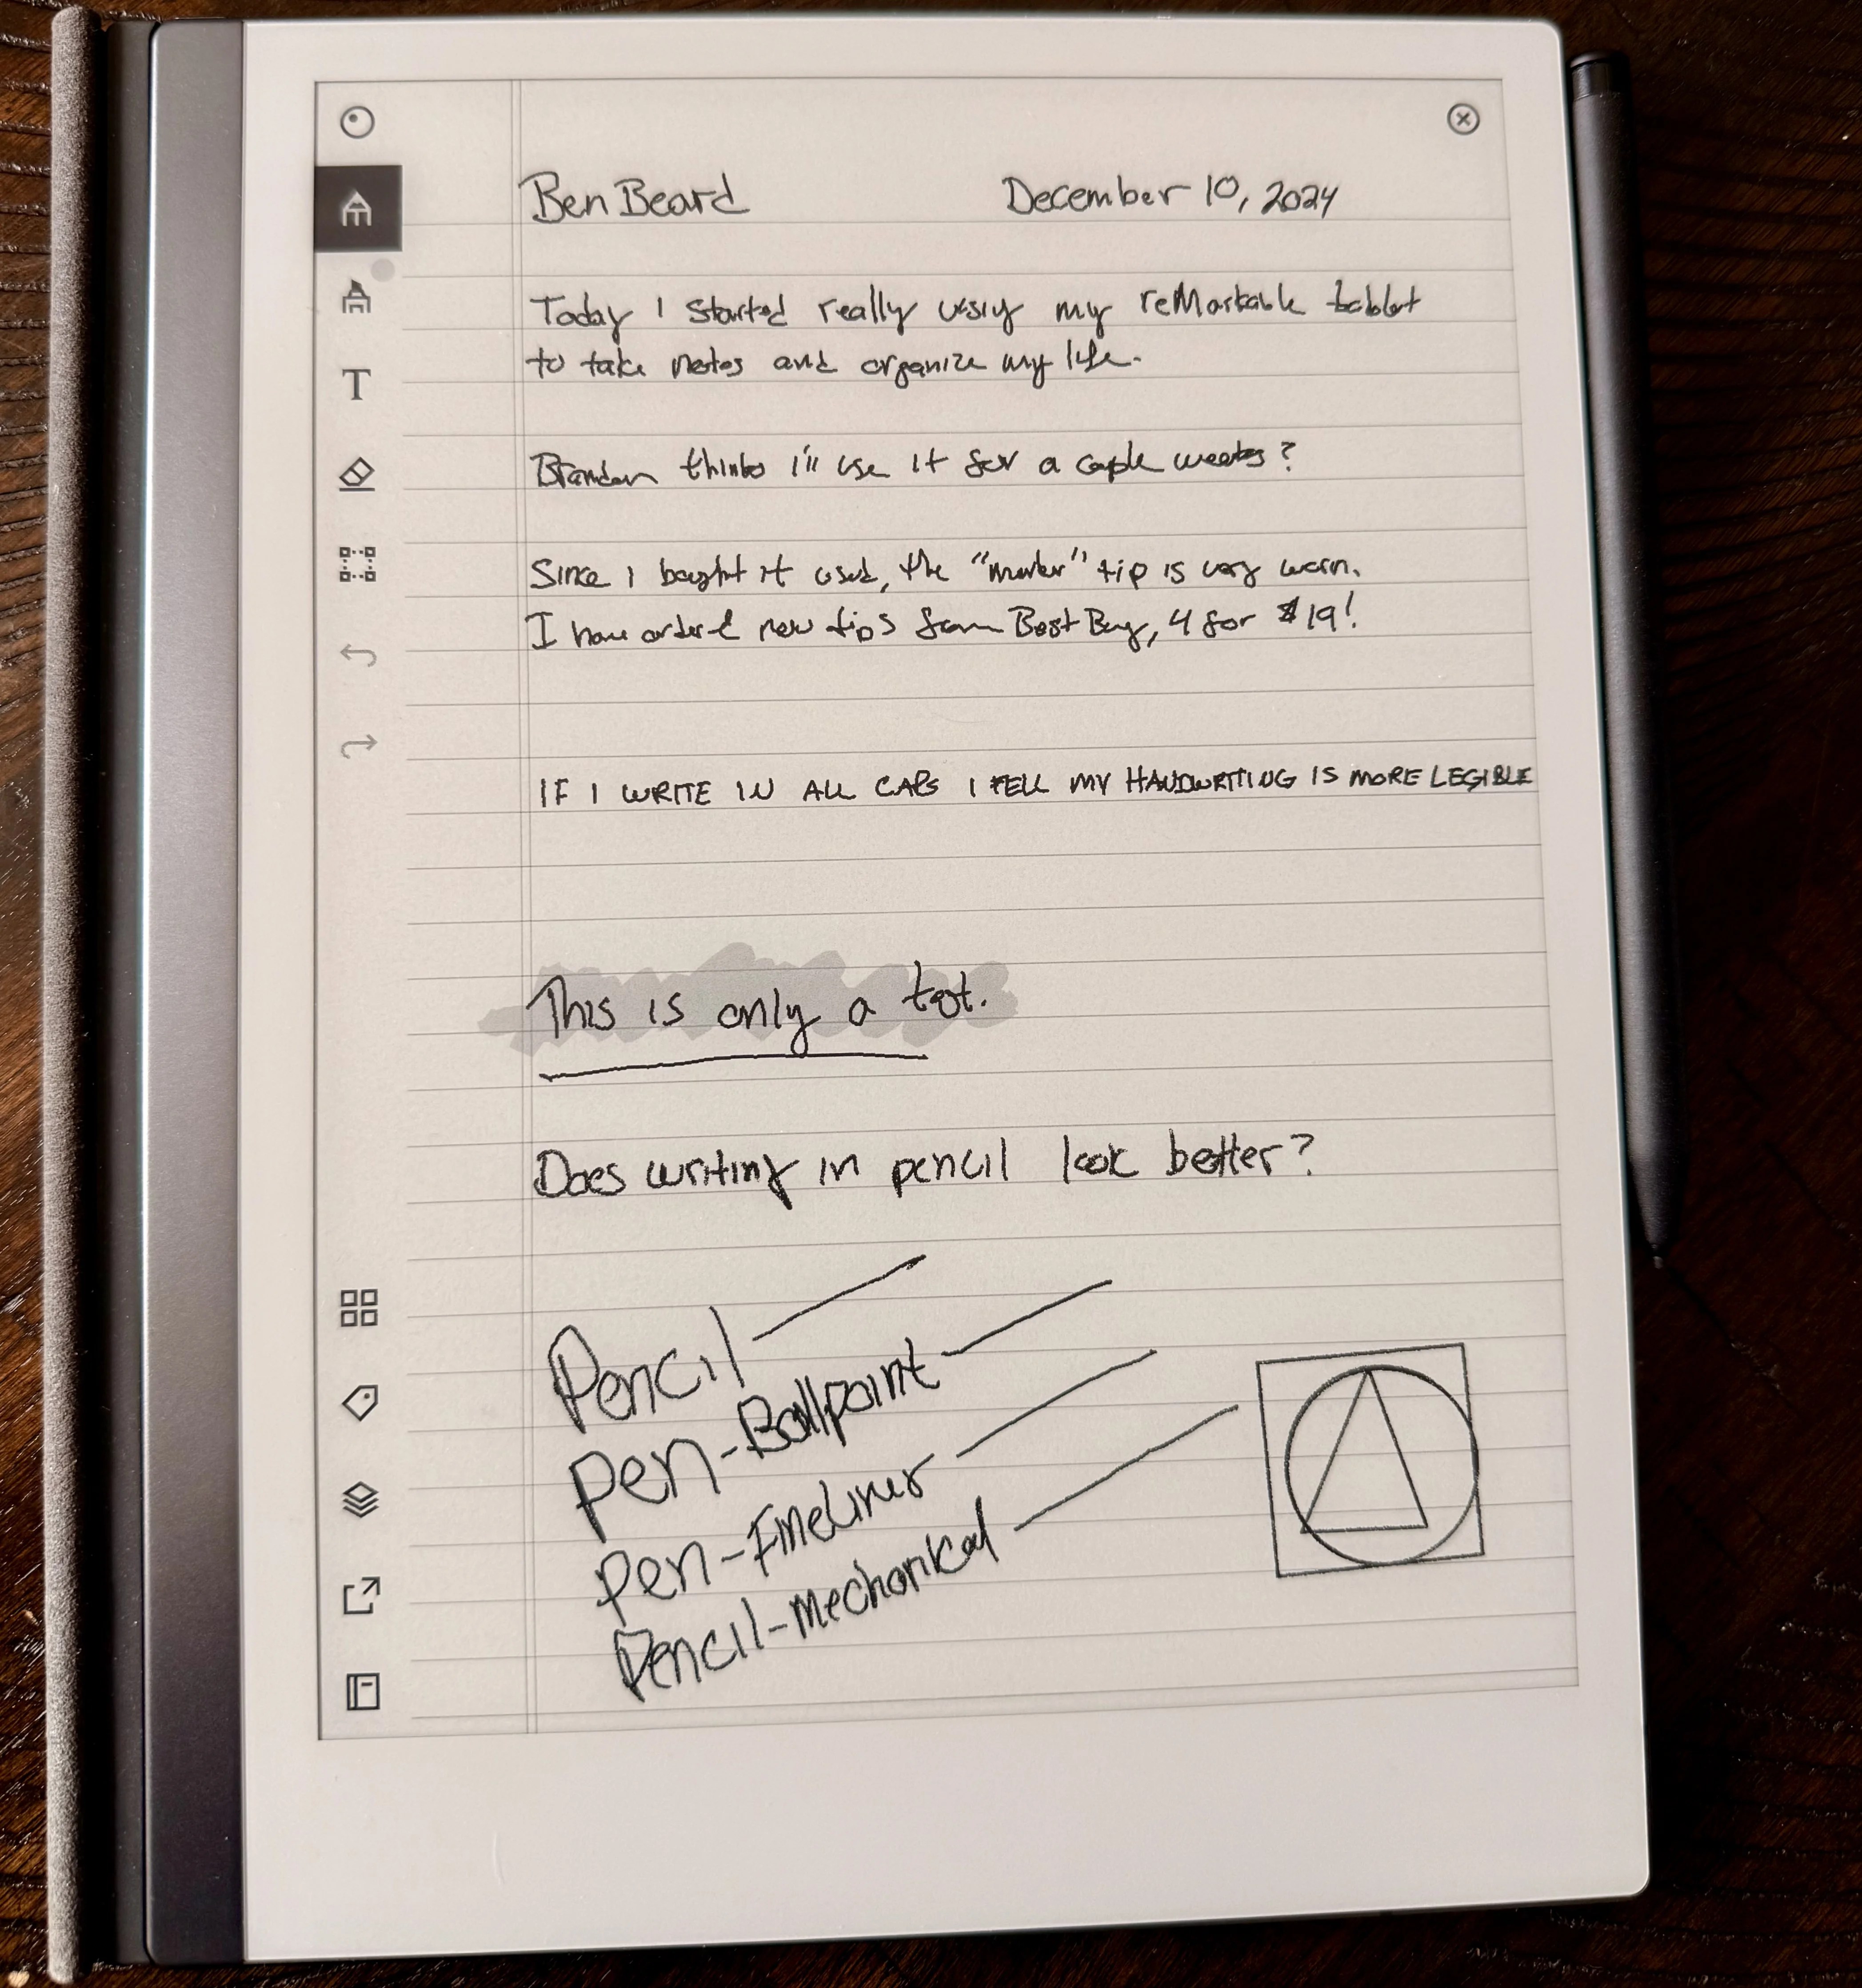 Ben Beard December 10, 2024
Today I started really using my reMarkable tablet
to take notes and organize my life.
Brandon thinks I'll use it for a couple weeks?
Since I bought it used, the "marker" tip is very worn.
I have ordered new tips from Best Buy, 4 for $19!
IF I WRITE IN ALL CAPS I FELL MY HANDWRITING IS MORE LEGIBLE
This is only a test.
Does writing in pencil look better?
Pencil
Pen-Ballpoint
Pen-Fineliner
Pencil-Mechanical